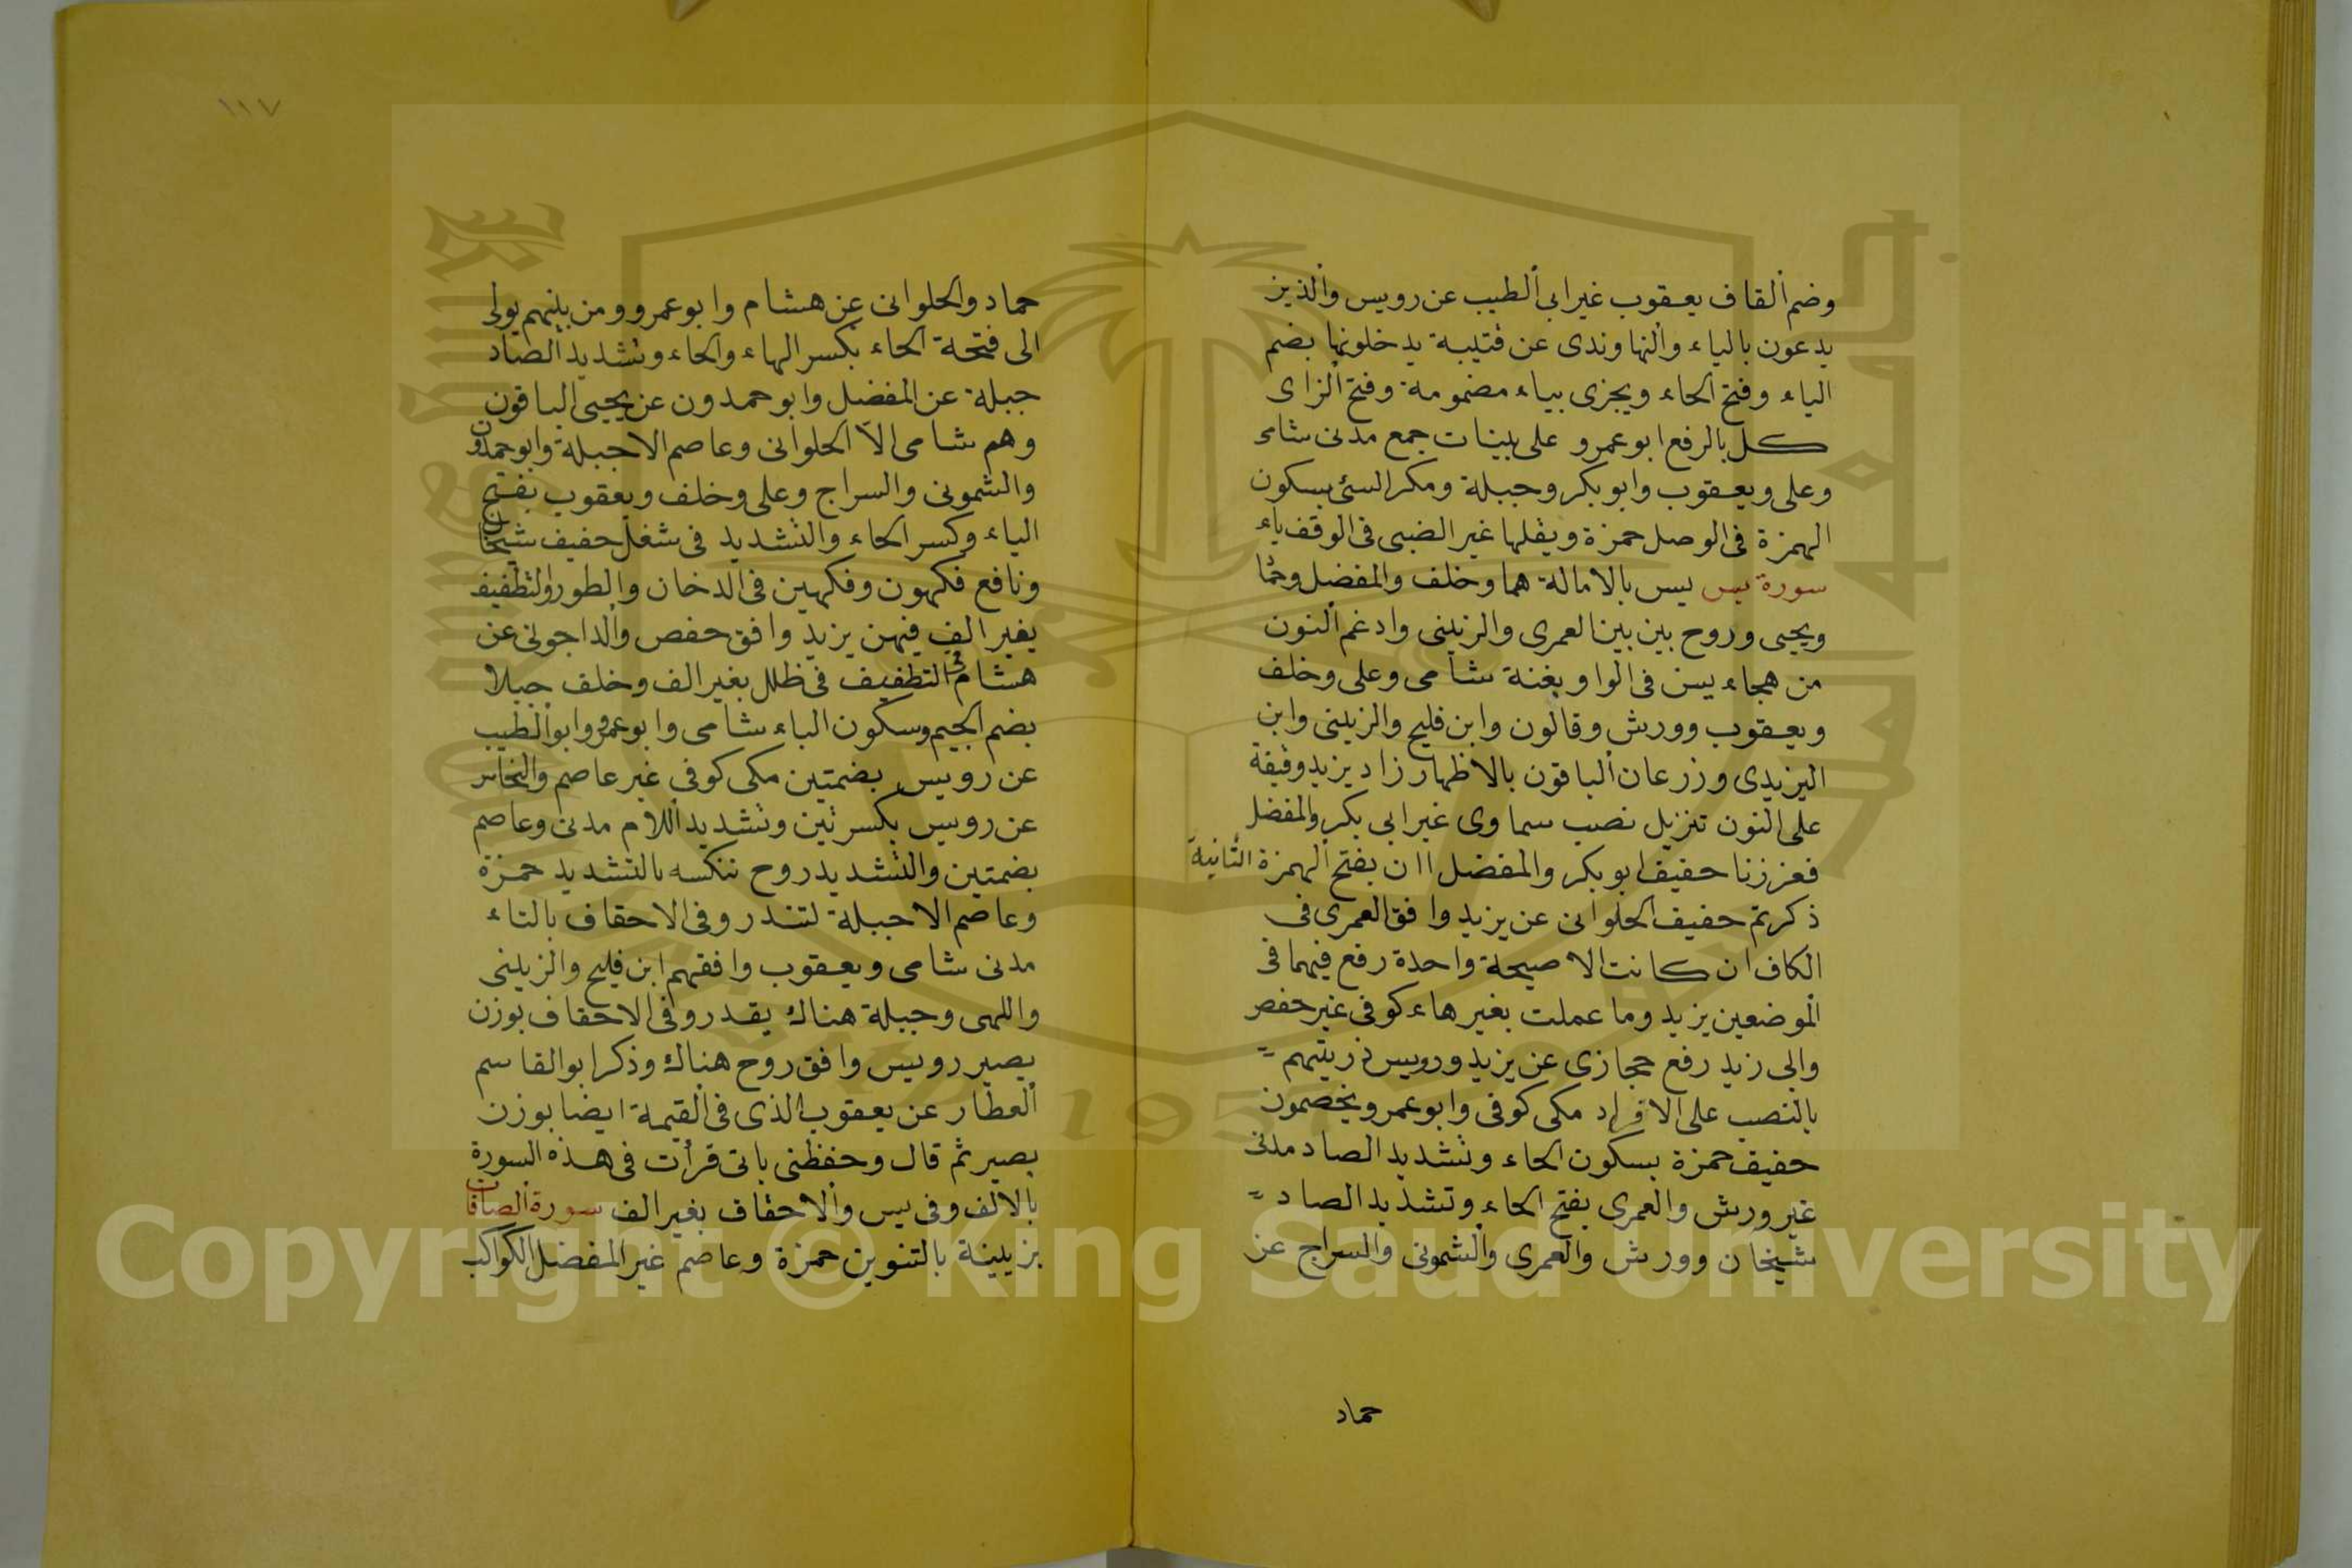 وضم القاف يعقوب غير ابى الطيب عن رويس والذين
يدعون بالياء والنهاوندى عن قتيبة يدخلونها بضم
الياء وفتح الخاء ويجزى بياء مضمومة وفتح الزاى
كل بالرفع ابو عمرو على بينات جمع مدنى شامى
وعلى ويعقوب وابو بكر وجبلة ومكر السئ بسكون
الهمزة فى الوصل حمزة ويقلبها غير الضبى فى الوقف ياء
سورة يس يس بالامالة هما وخلف والمفضل وحما
ويحيى وروح بين بين العمرى والزينبى وادغم النون
من هجاء يس فى الواو بغنة شامى وعلى وخلف
ويعقوب وورش وقالون وابن فليح والزينبى وابن
اليزيدى وزرعان الباقون بالاظهار زاد يزيد وقيفة
على النون تنزيل نصب سماوى غير ابى بكر والمفضل
فعززنا خفيف ابو بكر والمفضل اان بفتح الهمزة الثانية
ذكرتم خفيف الحلوانى عن يزيد وافق العمرى فى
الكاف ان كانت الا صيحة واحدة رفع فيهما فى
الموضعين يزيد وما عملت بغير هاء كوفى غير حفص
والى زيد رفع حجازى عن يزيد ورويس ذريتهم
بالنصب على الافراد مكى كوفى وابو عمرو يخصمون
خفيف حمزة بسكون الخاء وتشديد الصاد مدنى
غير ورش والعمرى بفتح الخاء وتشديد الصاد
شيخان وورش والعمرى والشمونى والسراج عن
حماد
١١٧
حماد والحلوانى عن هشام وابو عمرو ومن بينهم يولى
الى فتحة الخاء بكسر الهاء والخاء وتشديد الصاد
جبلة عن المفضل وابو حمدون عن يحيى الباقون
وهم شامى الا الحلوانى وعاصم الا جبلة وابو حمدون
والشمونى والسراج وعلى وخلف ويعقوب بفتح
الياء وكسر الخاء والتشديد فى شغل خفيف شيخان
ونافع فكهون وفكهين فى الدخان والطور والتطفيف
بغير الف فيهن يزيد وافق حفص والداجونى عن
هشام فى التطفيف فى ظلل بغير الف وخلف جبلا
بضم الجيم وسكون الباء شامى وابو عمرو وابو الطيب
عن رويس بضمتين مكى كوفى غير عاصم والنخاس
عن رويس بكسرتين وتشديد اللام مدنى وعاصم
بضمتين والتشديد روح ننكسه بالتشديد حمزة
وعاصم الا جبلة لتنذر وفى الاحقاف بالتاء
مدنى شامى ويعقوب وافقهم ابن فليح والزينبى
واللهى وجبلة هناك يقدر وفى الاحقاف بوزن
يصير رويس وافق روح هناك وذكر ابو القاسم
العطار عن يعقوب الذى فى القيمة ايضا بوزن
يصير ثم قال وحفظنى بانى قرأت فى هذه السورة
بالالف وفى يس والاحقاف بغير الف سورة الصافات
بزينة بالتنوين حمزة وعاصم غير المفضل الكواكب
Copyright © King Saud University
1957